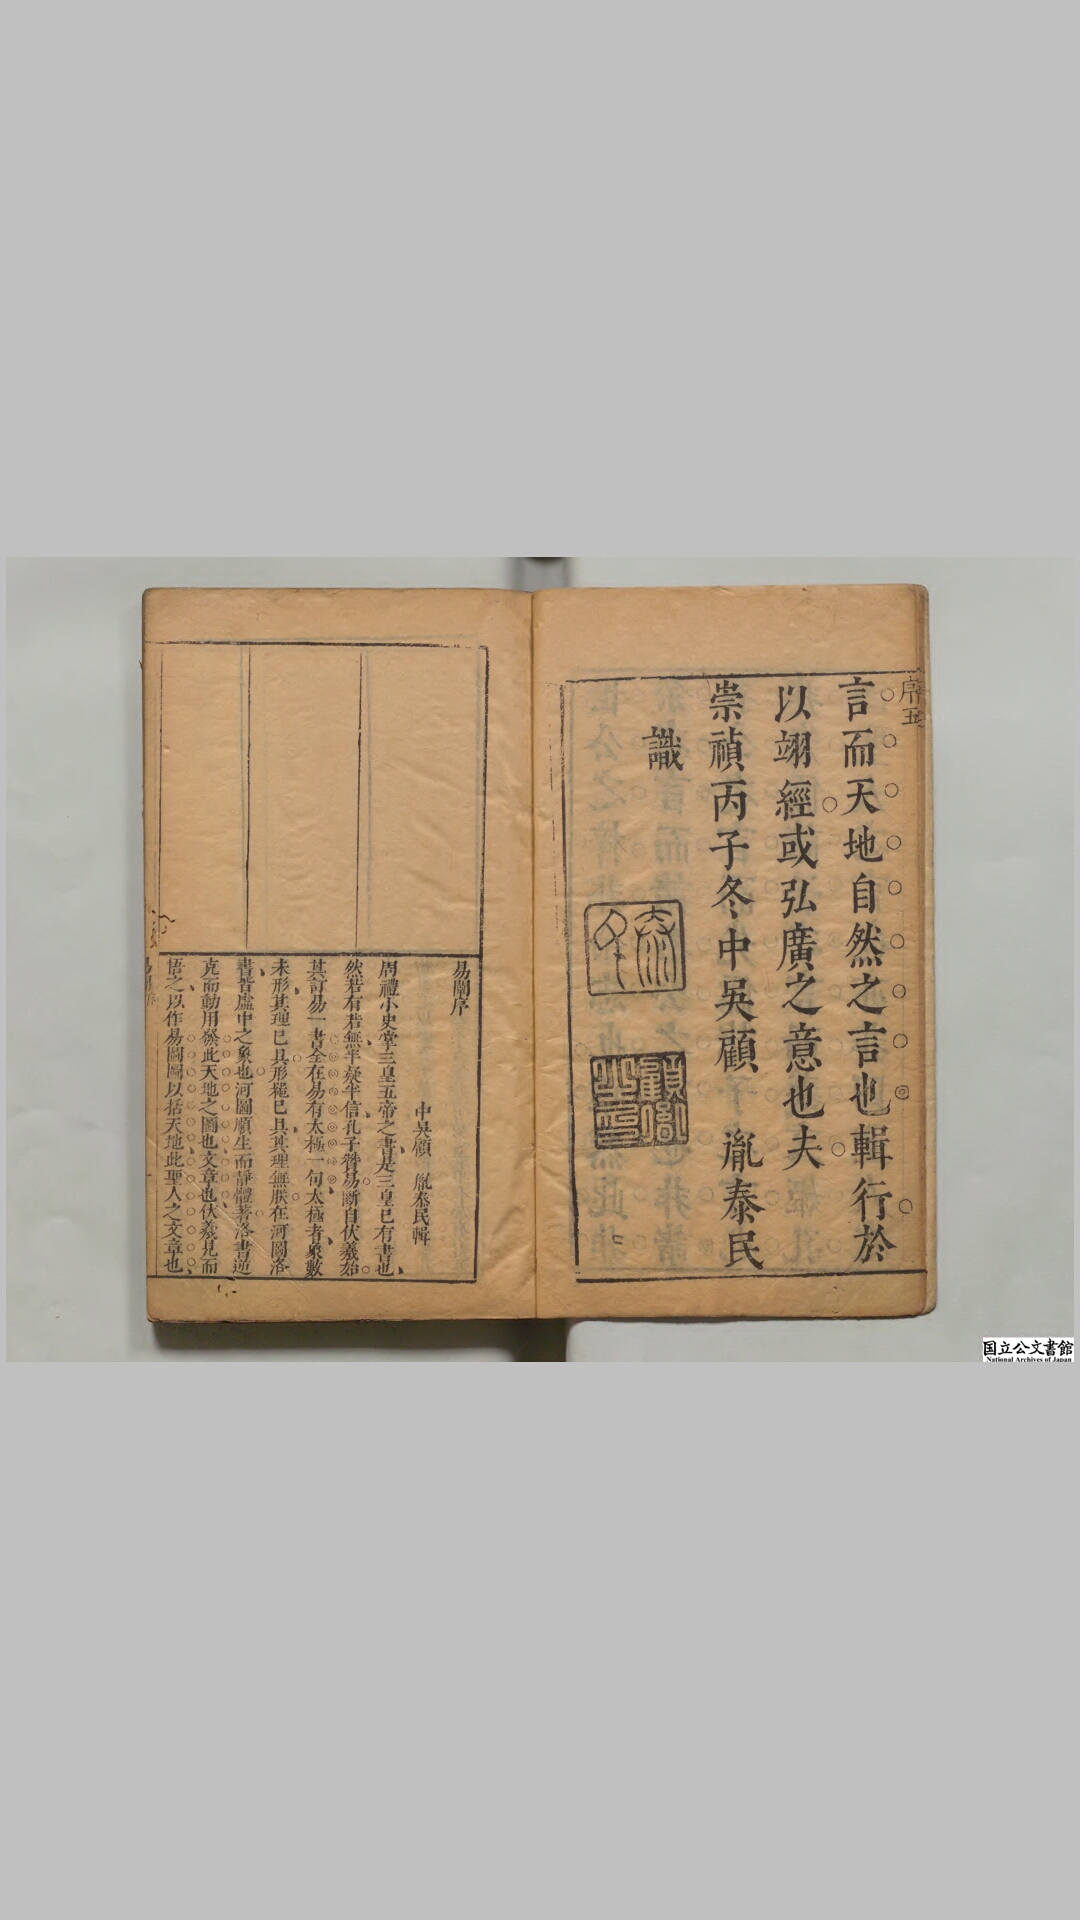 序五
言而天地自然之言也輯行於
以翊經或弘廣之意也夫
崇禎丙子冬中吳顧 胤泰民
識
易圖序
中吳顧 胤泰民輯
周禮小史掌三皇五帝之書是三皇已有書也
然若有若無半疑半信孔子贊易斷自伏羲始
其訂易一書全在易有太極一句太極者象數
未形其理已具形摧已具其理無朕在河圖洛
書皆虛中之象也河圖順生而靜體著洛書逆
克而動用發此天地之圖也文章也伏羲見而
悟之以作易圖圖以括天地此聖人之文章也
国立公文書館
National Archives of Japan